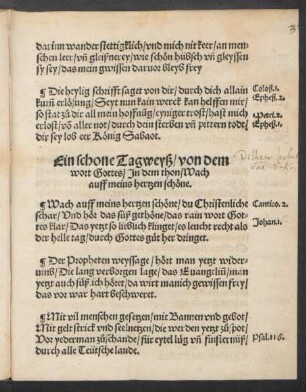 darinn wander stettigklich/vnd mich nit keer/an men-
schen leer/vñ gleißnerey/wie schön hübsch vñ gleyssen
sy sey/das mein gwissen daruor bleyb frey
¶ Die heylig schrifft saget von dir/durch dich allain
kum̃ erlösung/Seyt nun kain werck kan helffen mir/
so stat zů dir all mein hoffnũg/eyniger trost/hast mich
erlößt/võ aller not/durch dein sterben vñ pittern todt/
dir sey lob eer König Sabaot.
Coloß.1.
Ephes.2.
1.Petri.2.
Ephes.1.
Ein schone Tagweyß/von dem
wort Gottes/In dem thon/Wach
auff meins hertzen schöne.
¶ Wach auff meins hertzen schöne/du Christenliche
schar/Vnd hör das süß gethöne/das rain wort Got-
tes klar/Das yetzt so lieblich klinget/es leucht recht als
der helle tag/durch Gottes güt her dringet.
Cantico.2.
Johan.1.
¶ Der Propheten weyssage/hört man yetzt wider-
umb/Die lang verborgen lage/das Euangeliũ/man
yetzt auch süß ich höret/da wirt manich gewissen frey/
das vor war hart beschweret.
¶ Mit vil menschen gesetzen/mit Bannen vnd gebot/
Mit gelt strick vnd seelnetzen/die werden yetzt zů spot/
Vor yederman zů schande/für eytel lüg vñ finsternüß/
durch alle Teütsche lande.
Psal.116.